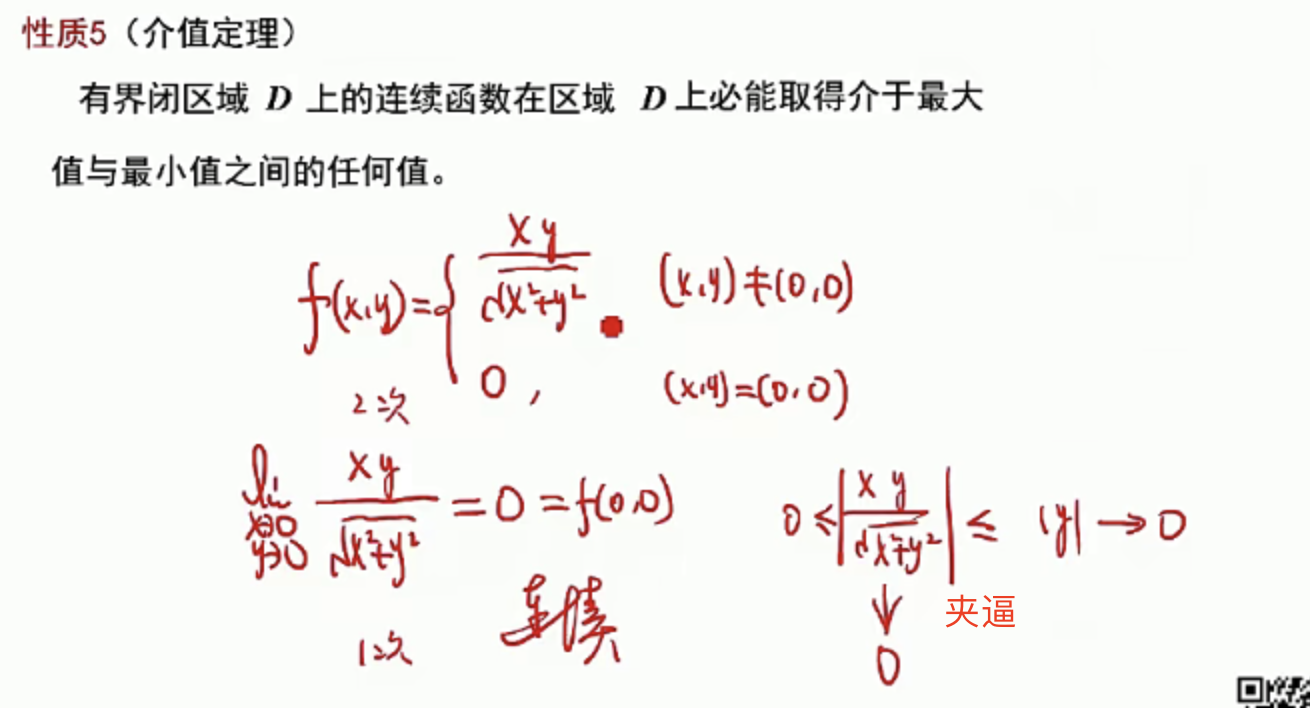 性质5（介值定理）
有界闭区域 D 上的连续函数在区域 D 上必能取得介于最大
值与最小值之间的任何值。
f(x,y)={ xy/√x²+y² (x,y)≠(0,0)
0, (x,y)=(0,0)
2次
lim x→0 y→0 xy/√x²+y² = 0 = f(0,0)
0 ≤ |xy/√x²+y²| ≤ |y| → 0
1次
连续
夹逼
↓
0